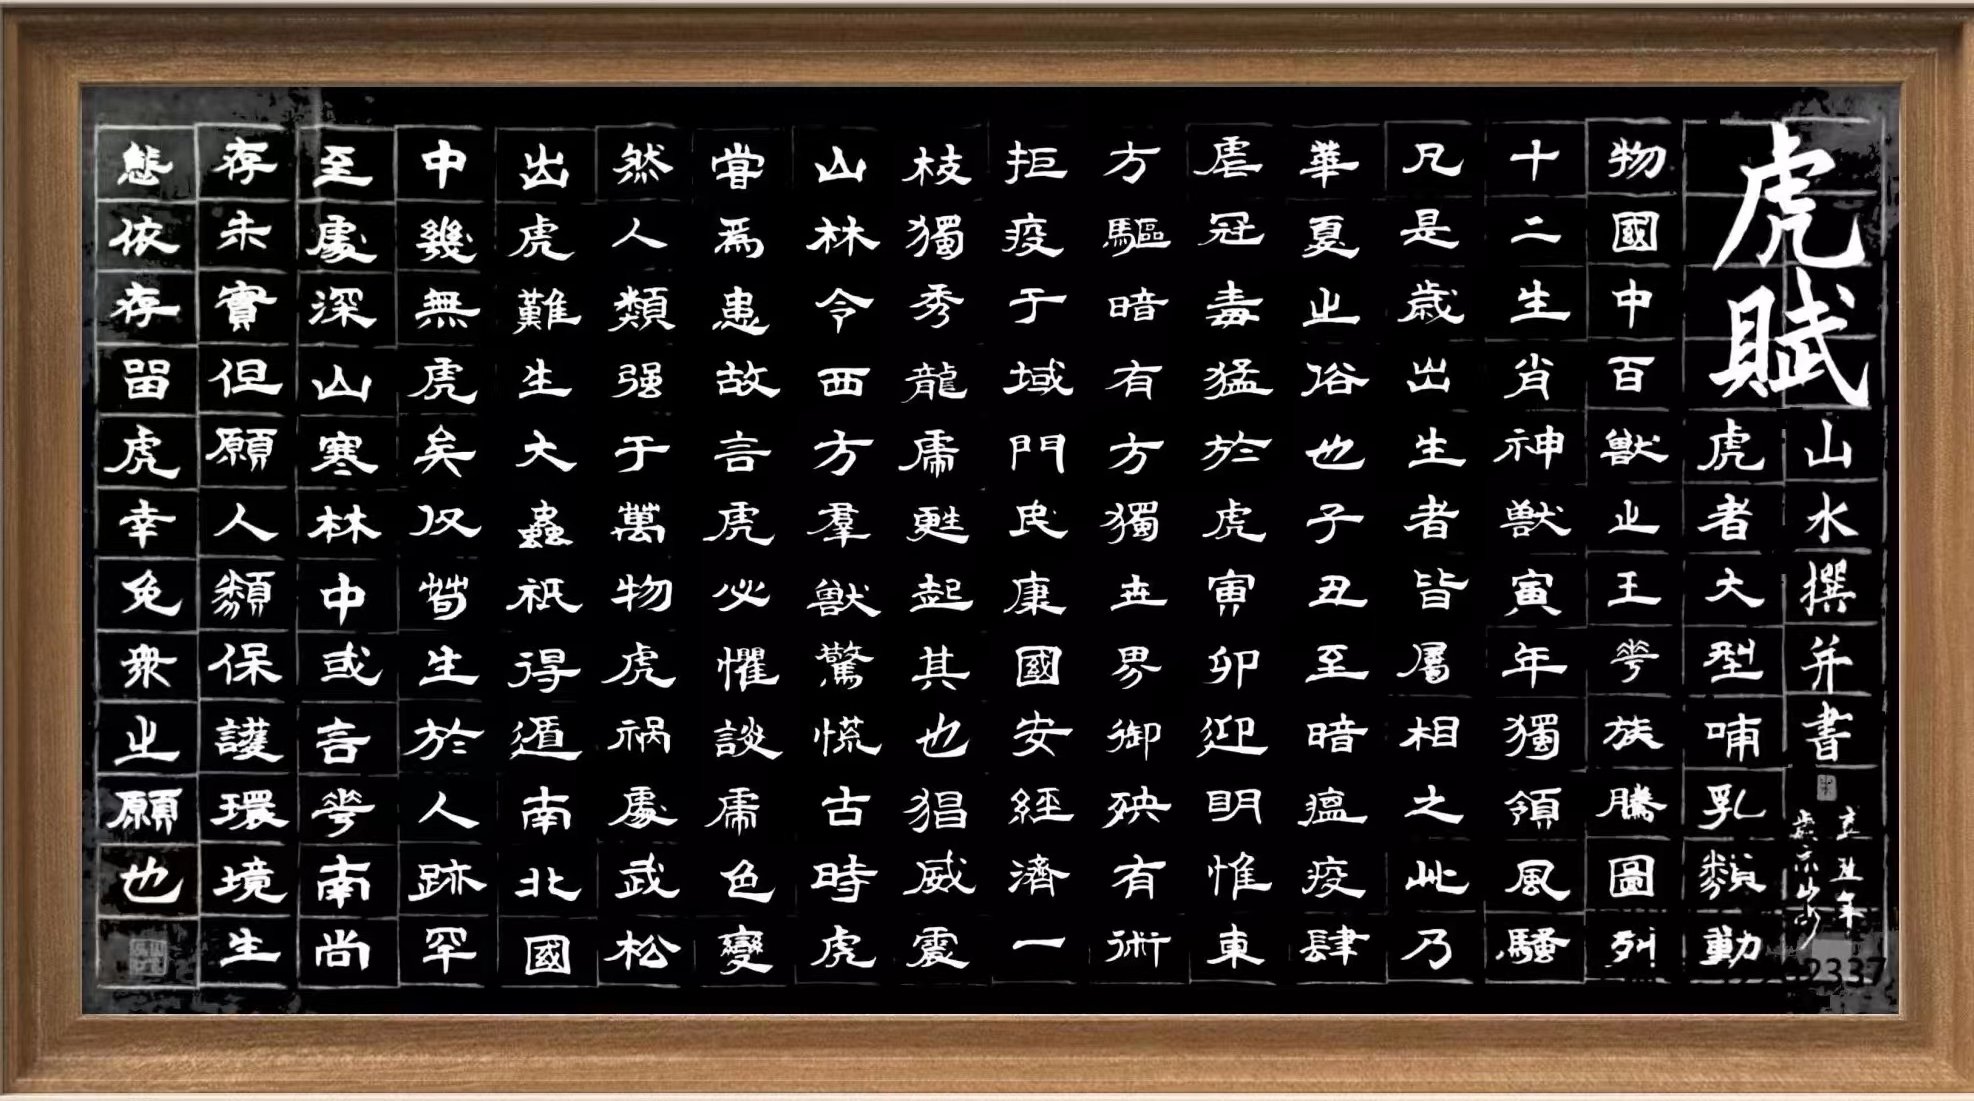 虎賦
山水撰并書
虎者大型哺乳類動
物國中百獸之王華族騰圖列
十二生肖神獸寅年獨領風騷
凡是歲出生者皆屬相之此乃
華夏之俗也子丑至暗瘟疫肆
虐冠毒猛於虎寅卯迎明惟東
方驅暗有方獨世界御殃有術
拒疫于域門民康國安經濟一
枝獨秀龍乕甦起其也猖威震
山林令西方羣獸驚慌古時虎
嘗爲患故言虎必懼談乕色變
然人類强于萬物虎祸處武松
出虎難生大蟲祇得遁南北國
中幾無虎矣仅苟生於人跡罕
至處深山寒林中或言華南尚
存未實但願人類保護環境生
態依存留虎幸免衆之願也
丑年